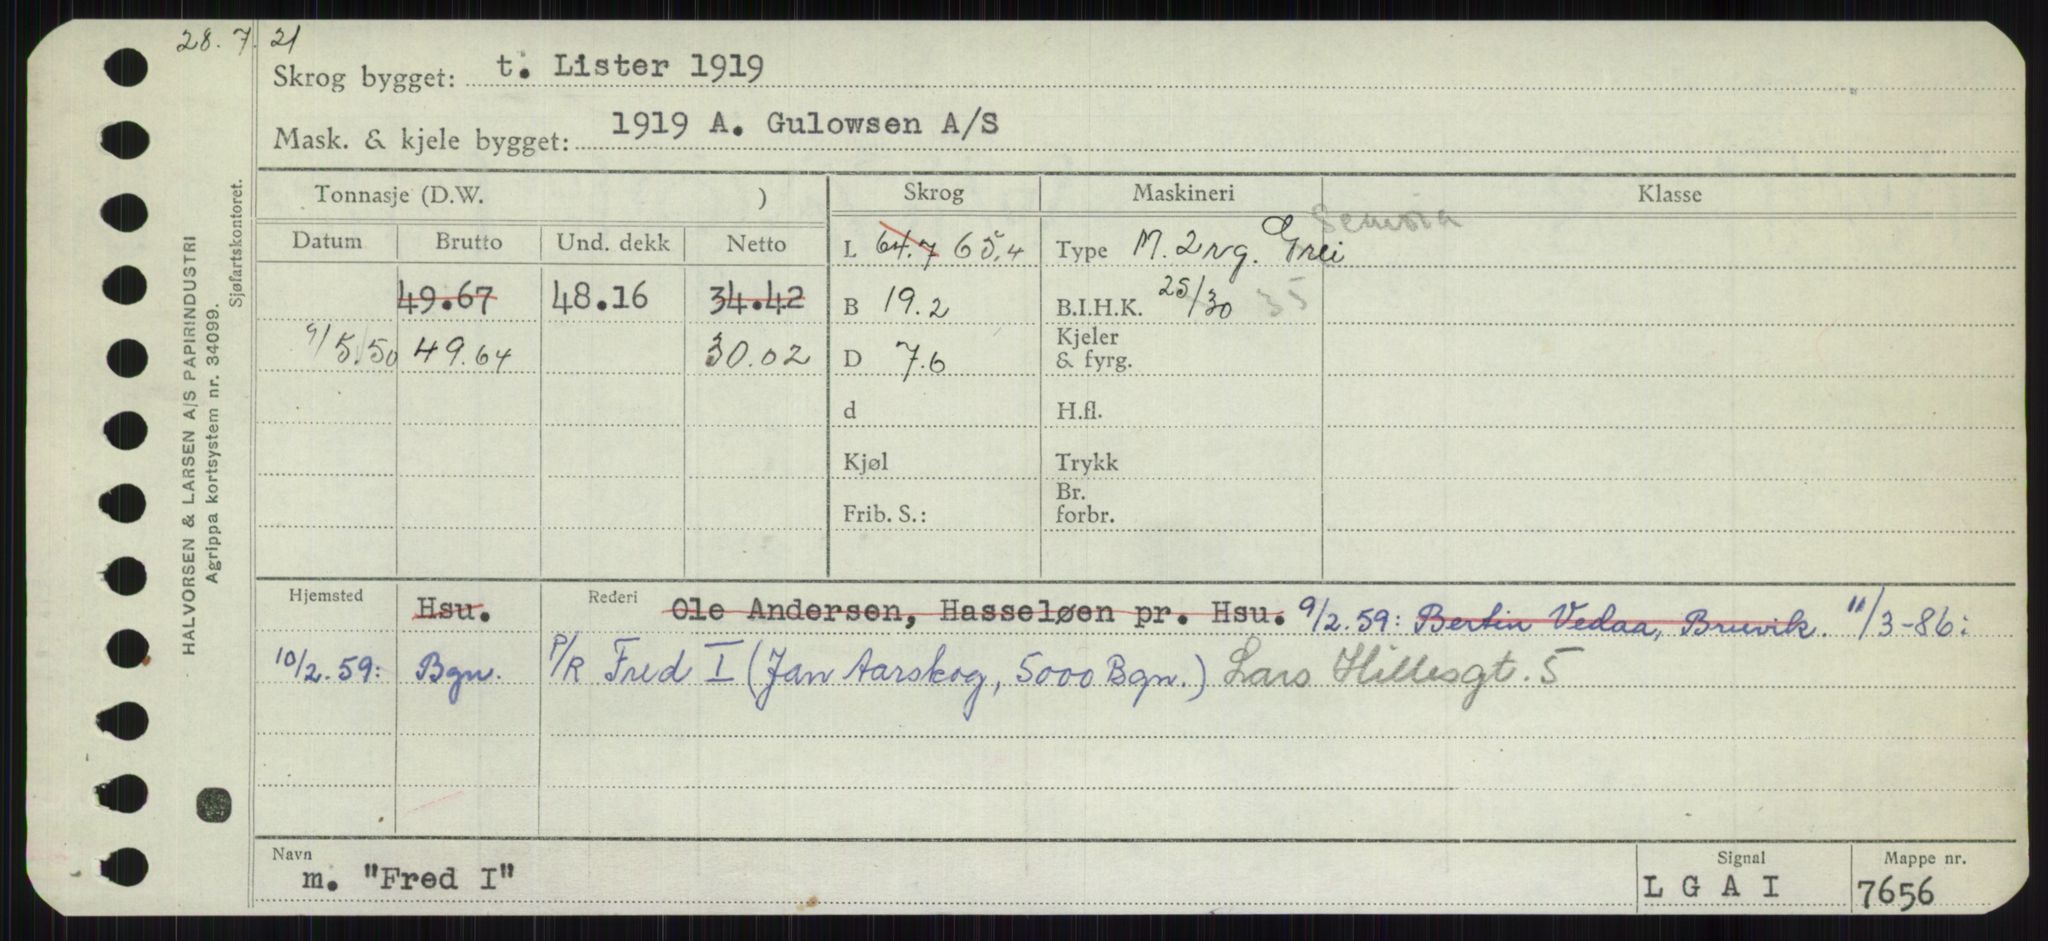 28.7.21
Skrog bygget: t. Lister 1919
Mask. & kjele bygget: 1919 A. Gulowsen A/S
Tonnasje (D.W. ) Skrog Maskineri Klasse
Datum Brutto Und. dekk Netto L 64.7 65,4 Type M. 2 Grei
49.67 48.16 34.42 B 19.2 B.I.H.K. 25/30 35
9/5.50 49.64 30.02 D 7.6 Kjeler & fyrg.
d H.fl.
Kjøl Trykk
Frib. S.: Br. forbr.
Hjemsted Hsu. Rederi Ole Andersen, Hasseløen pr. Hsu. 9/2.59: Bertin Vedaa, Bruvik. 11/3-86:
10/2.59: Bgn. P/R Fred I (Jan Aarskog, 5000 Bgn.) Lars Hillesgt. 5
Navn m. "Fred I" Signal L G A I Mappe nr. 7656
HALVORSEN & LARSEN A/S PAPIRINDUSTRI
Agrippa kortsystem nr. 34099.
Sjøfartskontoret.